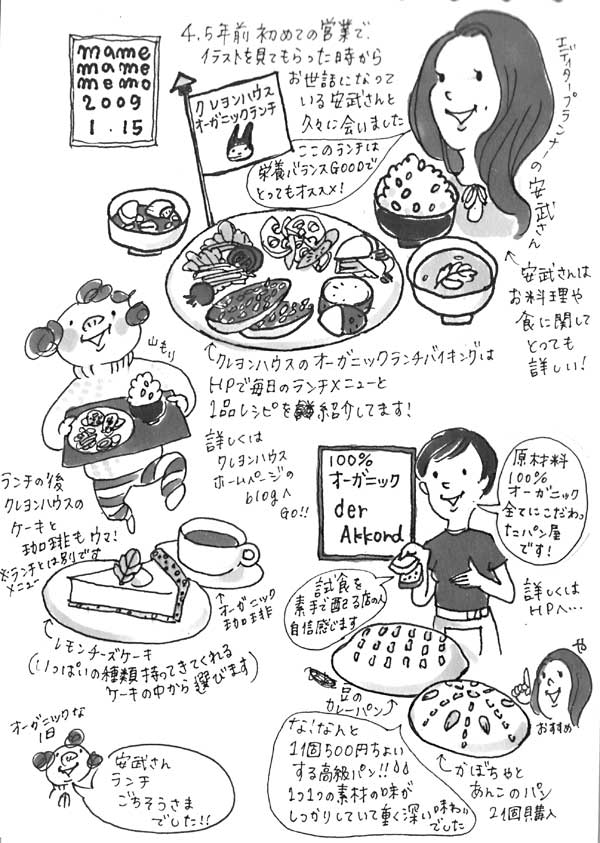 mame
mame
memo
2009
1.15
4.5年前 初めての営業で、
イラストを見てもらった時から
お世話になって
いる安武さんと
久々に会いました
クレヨンハウス
オーガニックランチ
ここのランチは
栄養バランスGOODで
とってもオススメ!
エディタープランナーの安武さん
安武さんは
お料理や
食に関して
とっても
詳しい!
山もり
クレヨンハウスのオーガニックランチバイキングは
HPで毎日のランチメニューと
1品レシピを紹介してます!
詳しくは
クレヨンハウス
ホームページの
blogへ
GO!!
ランチの後
クレヨンハウスの
ケーキと
珈琲もウマ!
※ランチとは別です
メニュー
オーガニック
珈琲
レモンチーズケーキ
(いっぱいの種類持ってきてくれる
ケーキの中から選びます)
100%
オーガニック
der
Akkord
原材料
100%
オーガニック
全てにこだわっ
たパン屋
です!
詳しくは
HPへ…
試食を
素手で配る店の人
自信感じます
豆の
カレーパン
おすすめ
かぼちゃと
あんこのパン
21個購入
な!なんと
1個500円ちょい
する高級パン!!
1つ1つの素材の味が
しっかりしていて重く深い味わい
でした
オーガニックな
1日
安武さん
ランチ
ごちそうさま
でした!!